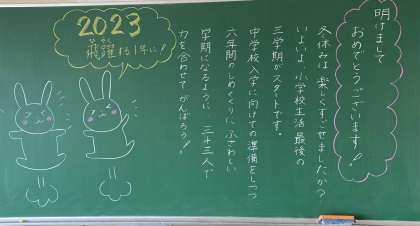 明けまして
おめでとうございます!!
冬休みは楽しくすごせましたか?
いよいよ、小学校生活最後の
三学期がスタートです。
中学校入学に向けての準備をしつつ
六年間のしめくくりにふさわしい
学期になるよう、三十三人で
力を合わせてがんばろう!!
2023
飛躍する1年に!
ひやく